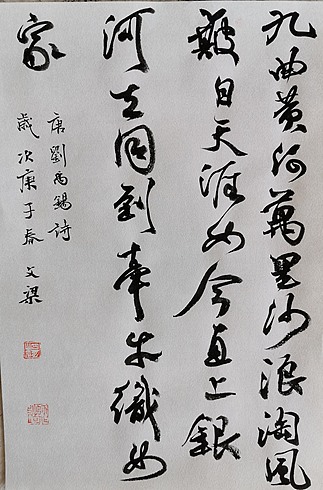 九曲黄河萬里沙浪淘風
簸自天涯如今直上銀
河去同到牽牛織女
家
唐劉禹錫詩
歲次庚子春 文梁